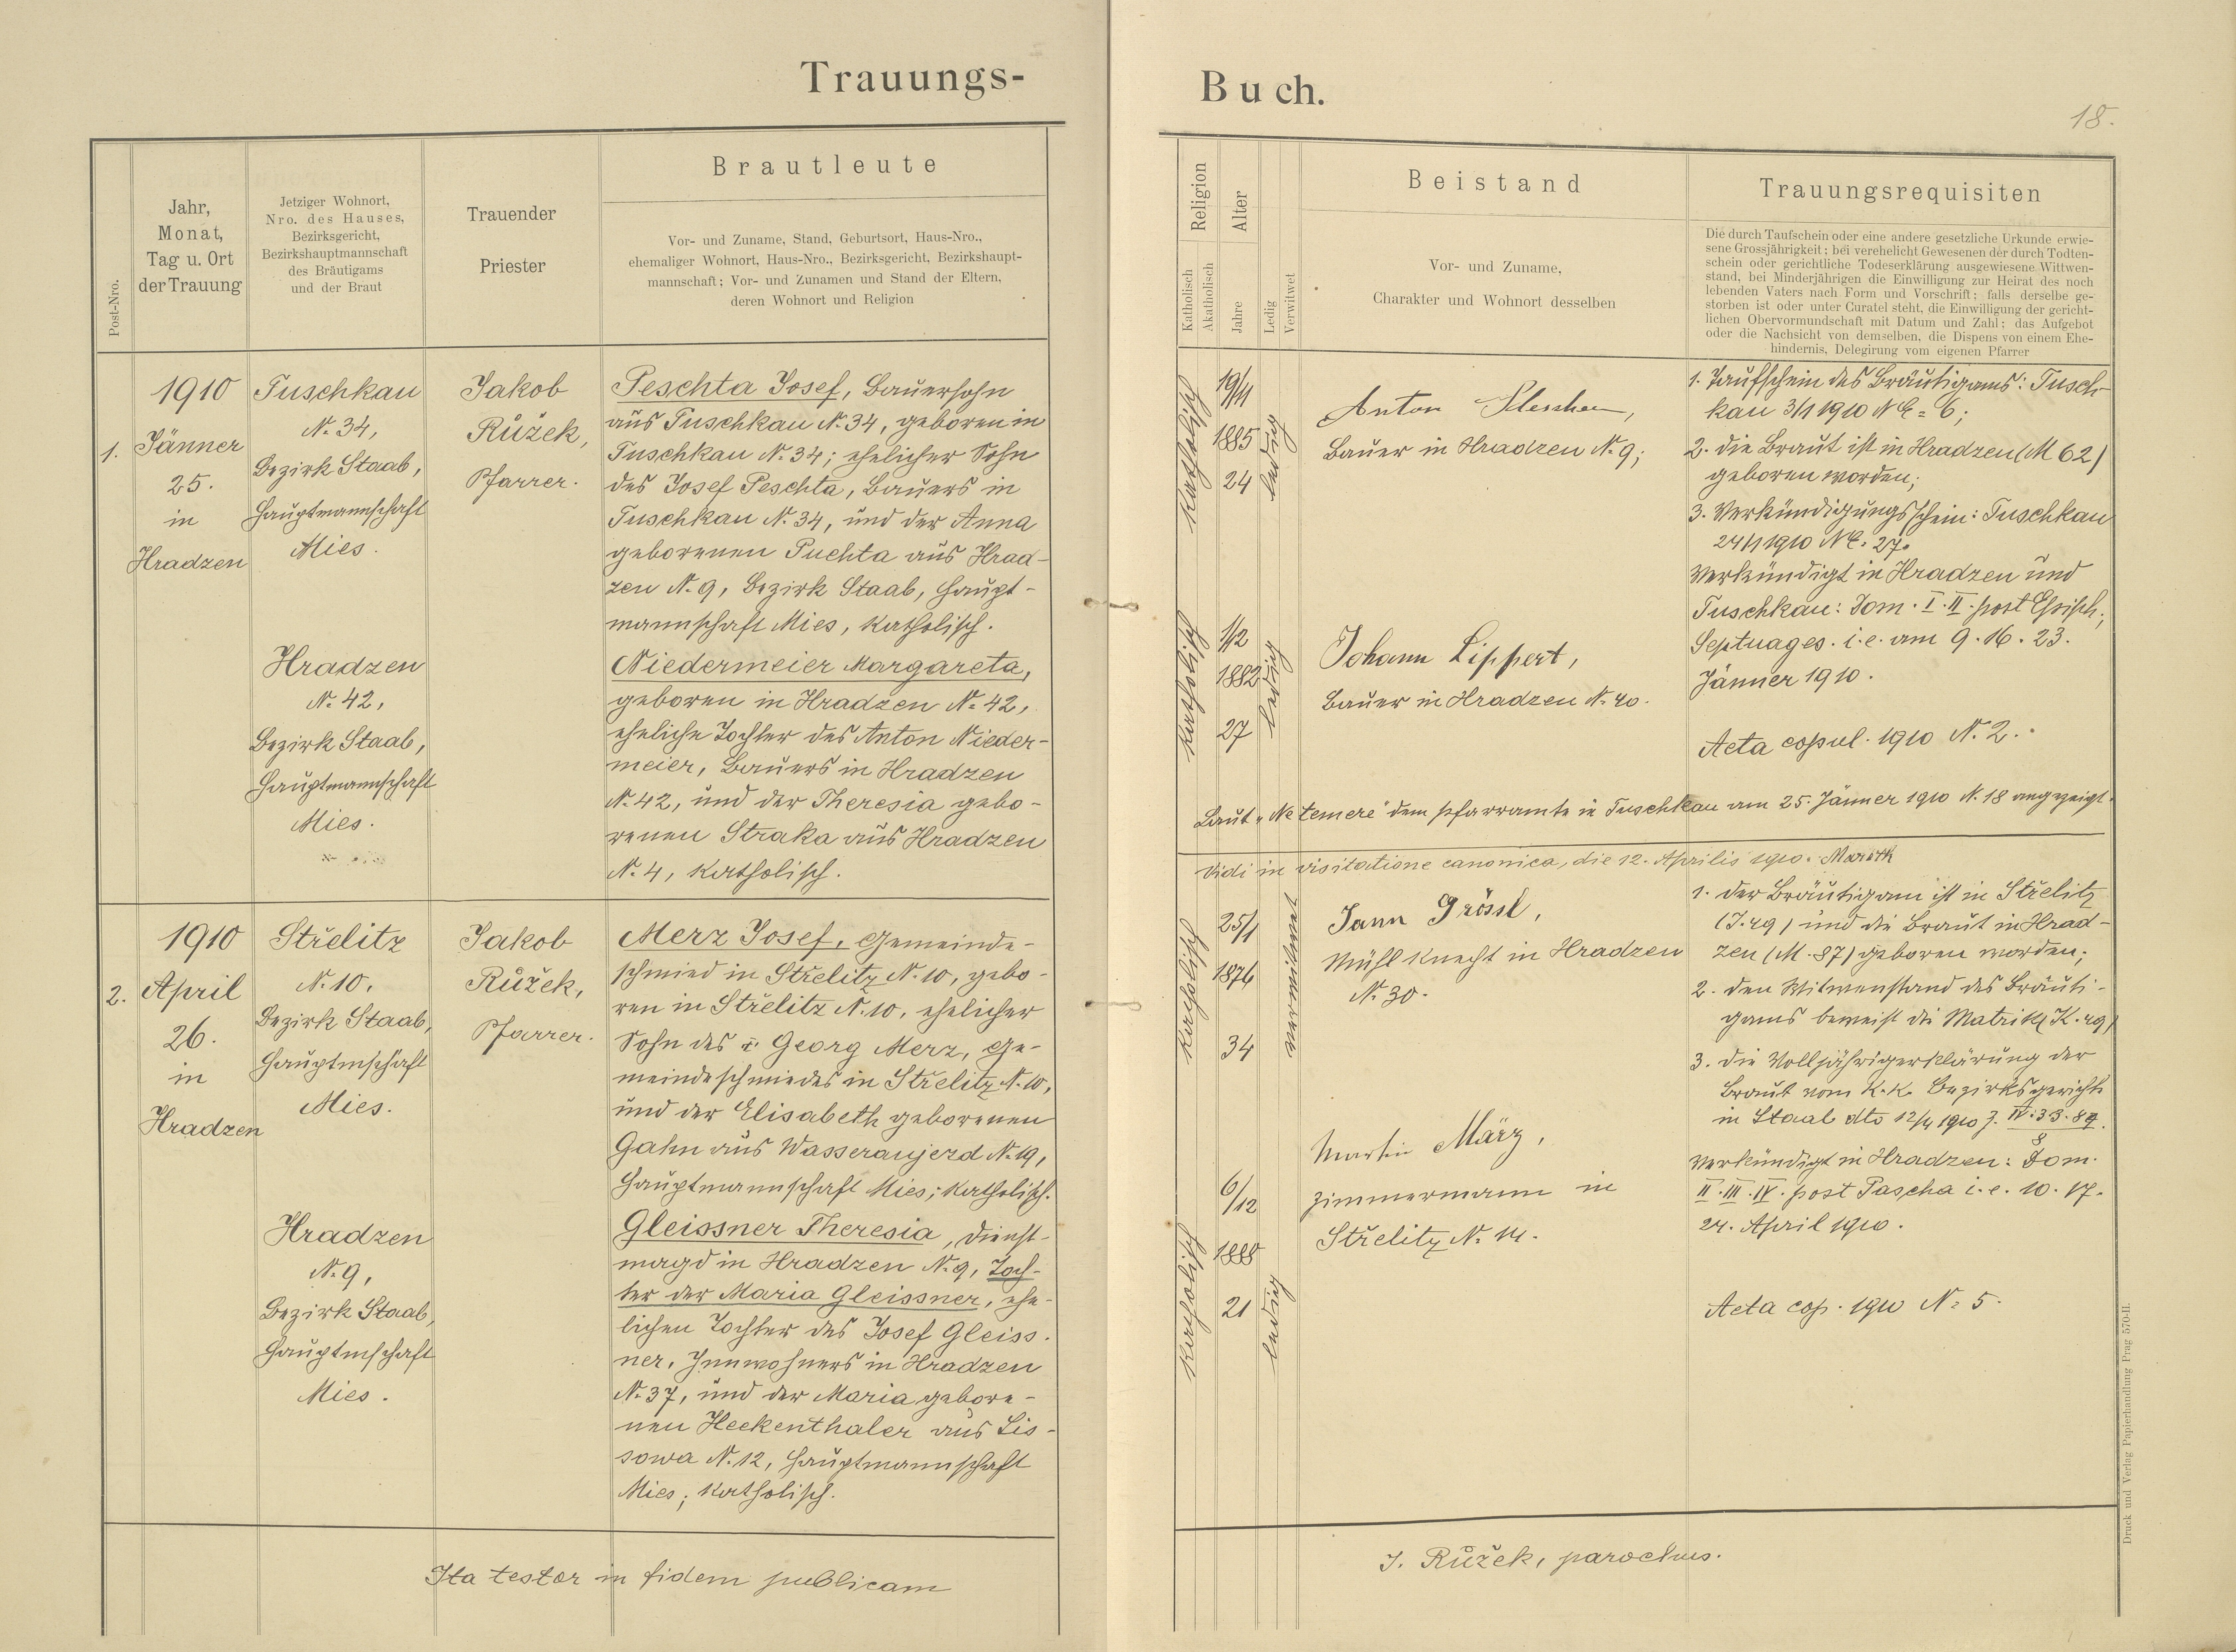 Trauungs-
Buch.
18.
Post-Nro.
Jahr,
Monat,
Tag u. Ort
der Trauung
Jetziger Wohnort,
Nro. des Hauses,
Bezirksgericht,
Bezirkshauptmannschaft
des Bräutigams
und der Braut
Trauender
Priester
Brautleute
Vor- und Zuname, Stand, Geburtsort, Haus-Nro.,
ehemaliger Wohnort, Haus-Nro., Bezirksgericht, Bezirkshaupt-
mannschaft; Vor- und Zunamen und Stand der Eltern,
deren Wohnort und Religion
Religion
Katholisch
Akatholisch
Alter
Jahre
Ledig
Verwitwet
Beistand
Vor- und Zuname,
Charakter und Wohnort desselben
Trauungsrequisiten
Die durch Taufschein oder eine andere gesetzliche Urkunde erwie-
sene Grossjährigkeit; bei verehelicht Gewesenen der durch Todten-
schein oder gerichtliche Todeserklärung ausgewiesene Wittwen-
stand, bei Minderjährigen die Einwilligung zur Heirat des noch
lebenden Vaters nach Form und Vorschrift; falls derselbe ge-
storben ist oder unter Curatel steht, die Einwilligung der gericht-
lichen Obervormundschaft mit Datum und Zahl; das Aufgebot
oder die Nachsicht von demselben, die Dispens von einem Ehe-
hindernis, Delegirung vom eigenen Pfarrer
1.
1910
Jänner
25.
in
Hradzen
Tuschkau
N. 34,
Bezirk Staab,
Hauptmannschaft
Mies.
Hradzen
N. 42,
Bezirk Staab,
Hauptmannschaft
Mies.
Jakob
Růžek,
Pfarrer.
Peschta Josef, Bauersohn
aus Tuschkau N. 34, geboren in
Tuschkau N. 34; ehelicher Sohn
des Josef Peschta, Bauers in
Tuschkau N. 34, und der Anna
geborenen Puchta aus Hrad-
zen N. 9, Bezirk Staab, Haupt-
mannschaft Mies, katholisch.
Niedermeier Margareta,
geboren in Hradzen N. 42,
eheliche Tochter des Anton Nieder-
meier, Bauers in Hradzen
N. 42, und der Theresia gebo-
renen Straka aus Hradzen
N. 4, katholisch.
katholisch
19/11
1885
24
ledig
katholisch
1/2
1882
27
ledig
Anton
Bauer in Hradzen N. 9;
Johann Lippert,
Bauer in Hradzen N. 40.
1. Taufschein des Bräutigams: Tusch-
kau 3/1 1910 NE = 6;
2. die Braut ist in Hradzen (M 62)
geboren worden;
3. Verkündigungsschein: Tuschkau
24/1 1910 NE. 27.
Verkündigt in Hradzen und
Tuschkau: Dom. I. II. post Epiph.;
Septuages. i.e. am 9. 16. 23.
Jänner 1910.
Acta copul. 1910 N. 2.
Laut „Ne temere" dem Pfarramte in Tuschkau am 25. Jänner 1910 N. 18 angezeigt.
Vidi in visitatione canonica, die 12. Aprilis 1910.
2.
1910
April
26.
in
Hradzen
Střelitz
N. 10,
Bezirk Staab,
Hauptmschaft
Mies.
Hradzen
N. 9,
Bezirk Staab,
Hauptmschaft
Mies.
Jakob
Růžek,
Pfarrer.
Merz Josef, Gemeinde-
schmied in Střelitz N. 10, gebo-
ren in Střelitz N. 10, ehelicher
Sohn des Georg Merz, Ge-
meindeschmiedes in Střelitz N. 10,
und der Elisabeth geborenen
Gahn aus Wasseraujezd N. 19,
Hauptmannschaft Mies; katholisch.
Gleissner Theresia, Dienst-
magd in Hradzen N. 9, Toch-
ter der Maria Gleissner, ehe-
lichen Tochter des Josef Gleiss-
ner, Innwohners in Hradzen
N. 37, und der Maria gebore-
nen Heckenthaler aus Lis-
sowa N. 12, Hauptmannschaft
Mies; katholisch.
katholisch
25/1
1876
34
verwitwet
katholisch
6/12
1888
21
ledig
Grössl,
Mühlknecht in Hradzen
N. 30.
Martin März,
Zimmermann in
Střelitz N. 14.
1. der Bräutigam ist in Střelitz
(J. 49) und die Braut in Hrad-
zen (M. 87) geboren worden;
2. den Witwenstand des Bräuti-
gams beweist die Matrik (K. 49)
3. die Volljährigerklärung der
Braut vom k.k. Bezirksgerichte
in Staab dto 12/4 1910 J. IV. 33. 84
8
Verkündigt in Hradzen: Dom.
II. III. IV. post Pascha i.e. 10. 17.
24. April 1910.
Acta cop. 1910 N. 5.
Ita testor in fidem publicam
J. Růžek, parochus.
Druck und Verlag Papierhandlung Prag 570-II.